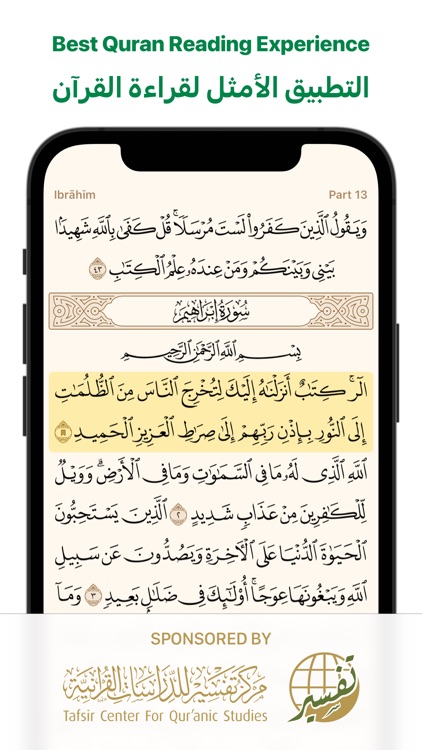 Best Quran Reading Experience
التطبيق الأمثل لقراءة القرآن
Ibrāhīm
Part 13
وَيَقُولُ ٱلَّذِينَ كَفَرُوا۟ لَسْتَ مُرْسَلًا ۚ قُلْ كَفَىٰ بِٱللَّهِ شَهِيدًۢا
بَيْنِى وَبَيْنَكُمْ وَمَنْ عِندَهُۥ عِلْمُ ٱلْكِتَٰبِ ٤٣
سُورَةُ إِبْرَاهِيمَ
بِسْمِ ٱللَّهِ ٱلرَّحْمَٰنِ ٱلرَّحِيمِ
الٓر ۚ كِتَٰبٌ أَنزَلْنَٰهُ إِلَيْكَ لِتُخْرِجَ ٱلنَّاسَ مِنَ ٱلظُّلُمَٰتِ
إِلَى ٱلنُّورِ بِإِذْنِ رَبِّهِمْ إِلَىٰ صِرَٰطِ ٱلْعَزِيزِ ٱلْحَمِيدِ ١
ٱللَّهِ ٱلَّذِى لَهُۥ مَا فِى ٱلسَّمَٰوَٰتِ وَمَا فِى ٱلْأَرْضِ ۗ وَوَيْلٌ
لِّلْكَٰفِرِينَ مِنْ عَذَابٍ شَدِيدٍ ٢ ٱلَّذِينَ يَسْتَحِبُّونَ
ٱلْحَيَوٰةَ ٱلدُّنْيَا عَلَى ٱلْءَاخِرَةِ وَيَصُدُّونَ عَن سَبِيلِ
ٱللَّهِ وَيَبْغُونَهَا عِوَجًا ۚ أُو۟لَٰٓئِكَ فِى ضَلَٰلٍۭ بَعِيدٍ ٣ وَمَآ
SPONSORED BY
مركز تفسير للدراسات القرآنية
تفسير
Tafsir Center For Qur'anic Studies